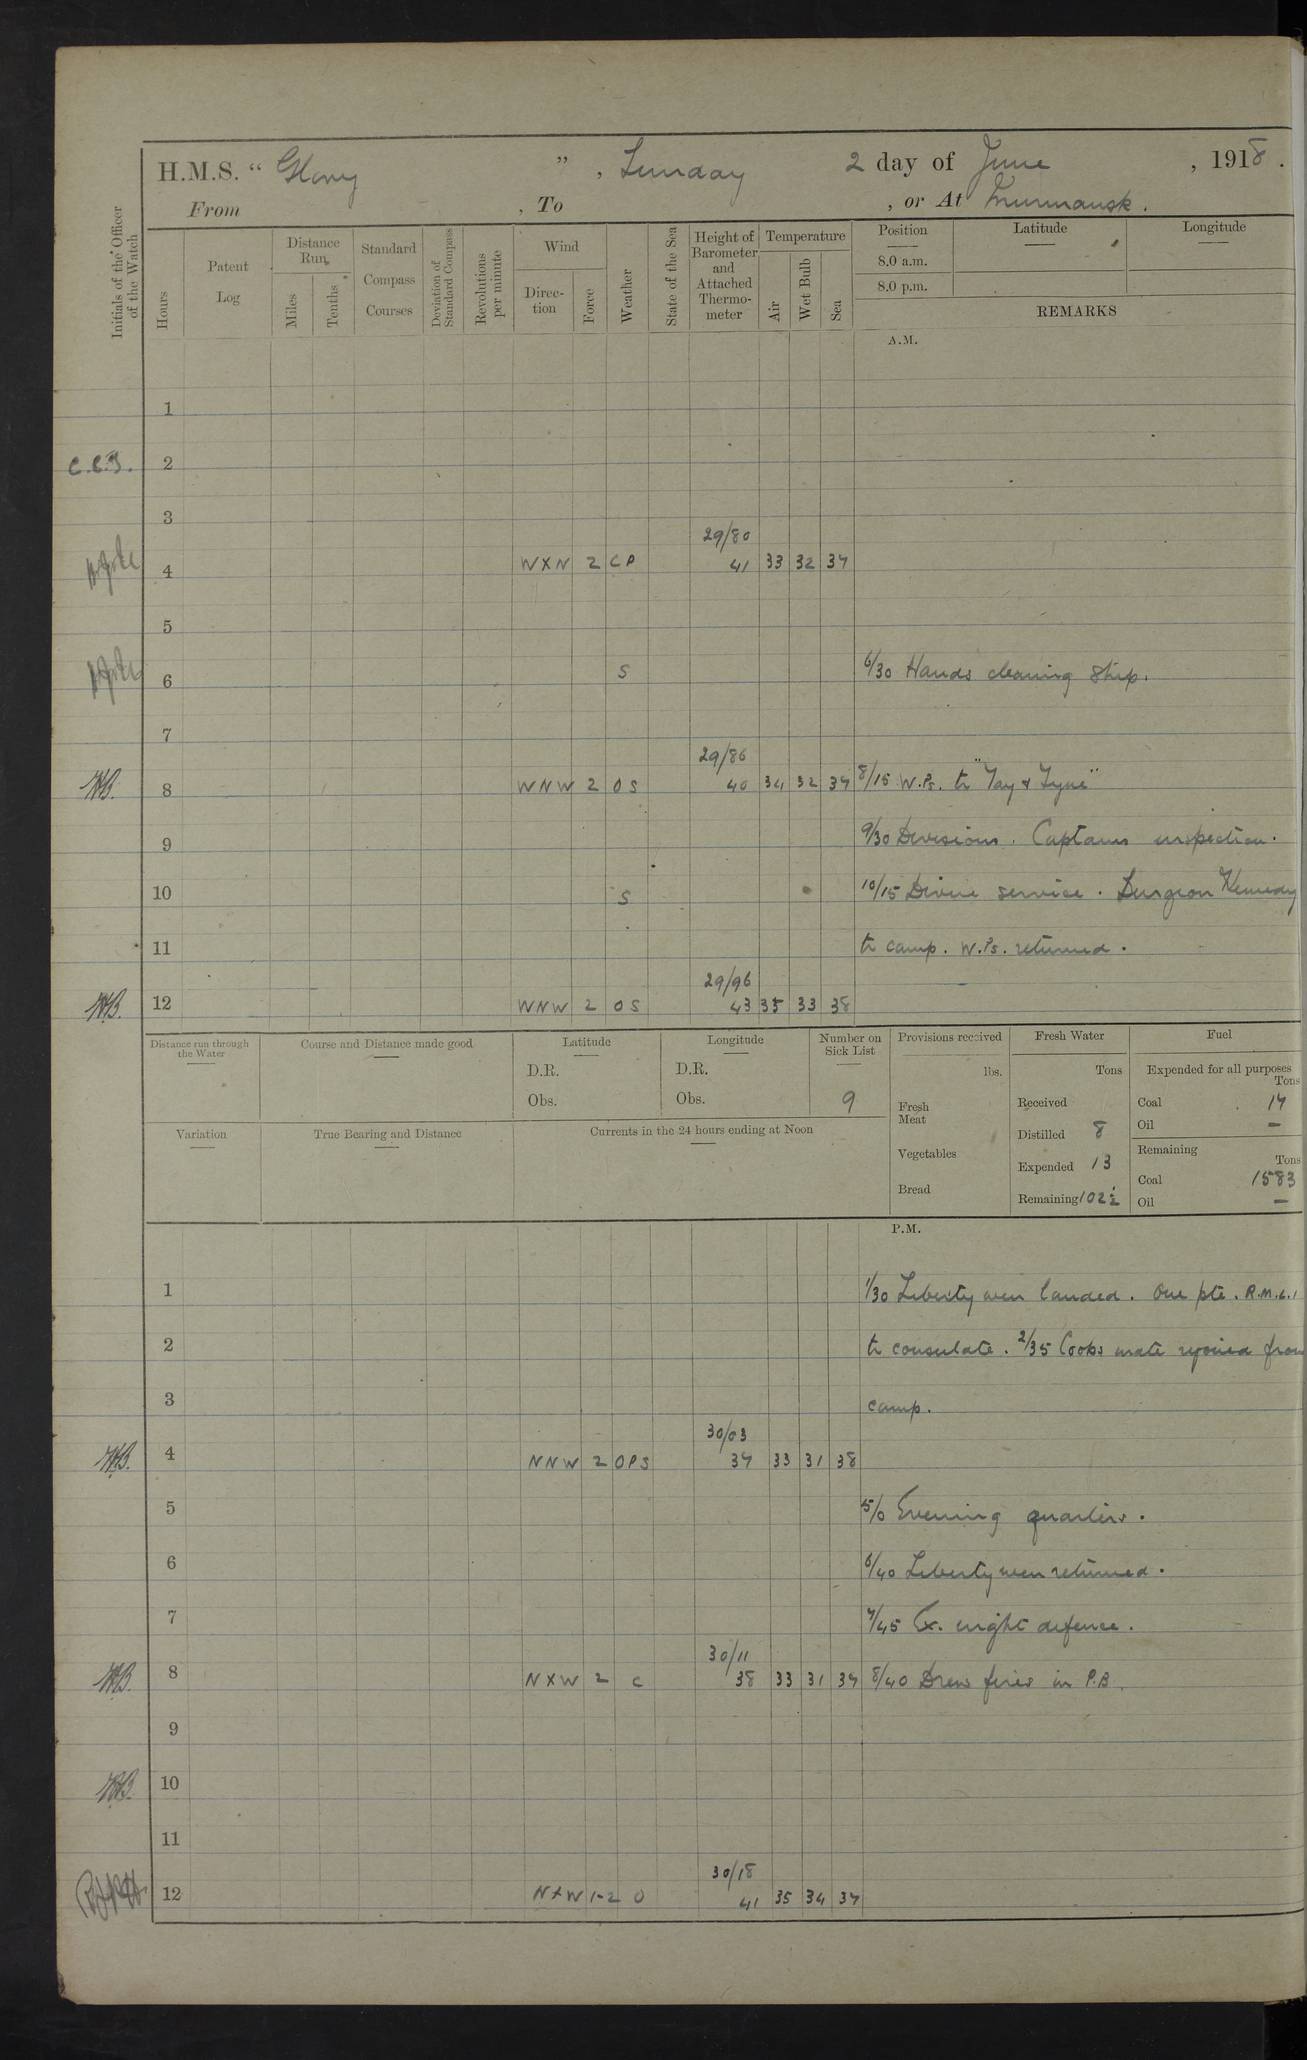 H.M.S. “ Glory ”, Sunday 2 day of June , 1918.
From , To , or At Murmansk.
Initials of the Officer of the Watch
Hours
Patent Log
Distance Run
Miles
Tenths
Standard Compass Courses
Deviation of Standard Compass
Revolutions per minute
Wind
Direction
Force
Weather
State of the Sea
Height of Barometer and Attached Thermometer
Temperature
Air
Wet Bulb
Sea
Position
8.0 a.m.
8.0 p.m.
Latitude
Longitude
REMARKS
A.M.
1
C.C.B. 2
3
29/80
4 WXN 2 CP 41 33 32 37
5
6 S 6/30 Hands cleaning ship.
7
29/86
8 WNW 2 OS 40 34 32 37 8/15 W.Ps. to "Tay & Tyne"
9 9/30 Divisions. Captains inspection.
10 S 10/15 Divine service. Surgeon Kennedy
11 to camp. W.Ps. returned.
29/96
12 WNW 2 OS 43 35 33 38
Distance run through the Water
Course and Distance made good
Latitude
D.R.
Obs.
Longitude
D.R.
Obs.
Number on Sick List
9
Provisions received
lbs.
Fresh Meat
Vegetables
Bread
Fresh Water
Tons
Received
Distilled 8
Expended 13
Remaining 102½
Fuel
Expended for all purposes
Tons
Coal 17
Oil —
Remaining
Tons
Coal 1583
Oil —
Variation
True Bearing and Distance
Currents in the 24 hours ending at Noon
P.M.
1 1/30 Liberty men landed. One pte. R.M.L.I
2 to consulate. 2/35 Cooks mate rejoined from
3 camp.
30/03
4 NNW 2 OPS 37 33 31 38
5 5/0 Evening quarters.
6 6/40 Liberty men returned.
7 7/45 Ex. night defence.
30/11
8 NXW 2 C 38 33 31 37 8/40 Drew fires in P.B.
9
10
11
30/18
12 NXW 1-2 O 41 35 34 37